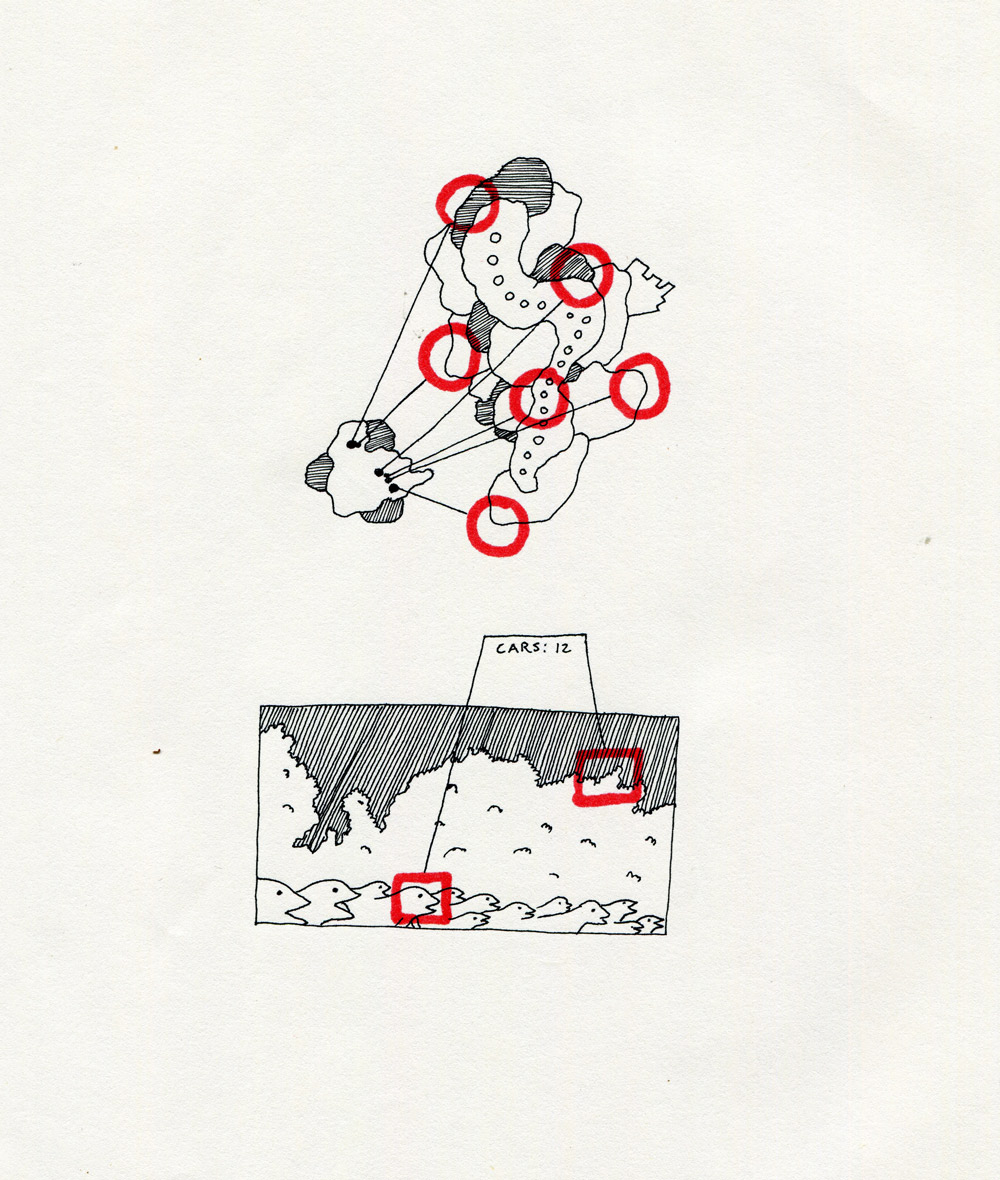 CARS: 12